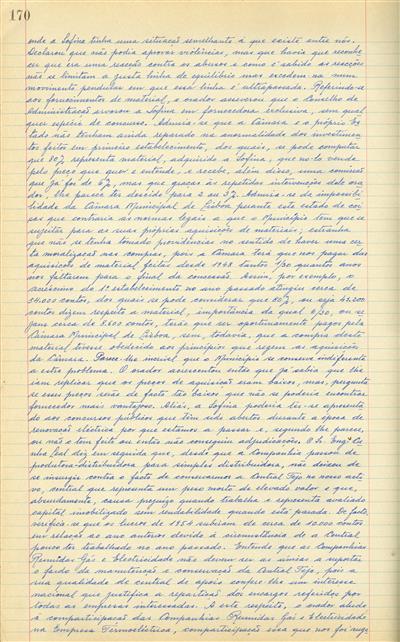 170
onde a Sofina tinha uma situação semelhante à que existe entre nós.
Declarou que não podia aprovar violências, mas que havia que reconhe-
cer que era uma reacção contra os abusos e como é sabido as reacções
não se limitam à justa linha de equilíbrio mas excedem-na num
movimento pendular em que essa linha é ultrapassada. Referindo-se
aos fornecimentos de material, o orador asseverou que o Conselho de
Administração arvorou a Sofina em fornecedora exclusiva, sem qual-
quer espécie de concurso. Admira-se que a Câmara e o próprio Es-
tado não tenham ainda reparado na anormalidade dos investimen-
tos feitos em primeiro estabelecimento, dos quais, se pode computar
que 80% representa material, adquirido à Sofina, que no-lo vende
pelo preço que quer e entende, e recebe, além disso, uma comissão
que já foi de 6%, mas que graças às repetidas intervenções dele ora-
dor, lhe parece ter descido para 2 ou 3%. Admira-se da impassibi-
lidade da Câmara Municipal de Lisboa perante este estado de coi-
sas que contraria as normas legais a que o Município tem que se
sujeitar para as suas próprias aquisições de materiais; estranha
que não se tenha tomado providências no sentido de haver uma cer-
ta moralização nas compras, pois a Câmara terá que nos pagar das
aquisições de material feitas desde 1948 tantos 1/30 quantos anos
nos faltarem para o final da concessão. Assim, por exemplo, o
acréscimo do 1º estabelecimento no ano passado atingiu cerca de
54.000 contos, dos quais se pode considerar que 80%, ou seja 43.200
contos dizem respeito a material, importância da qual 4/30, ou se-
jam cerca de 5.800 contos, terá que ser oportunamente pagos pela
Câmara Municipal de Lisboa, sem, todavia, que a compra deste
material tivesse obedecido aos princípios que regem as aquisições
da Câmara. Parece-lhe incrível que o Município se conserve indiferente
a este problema. O orador acrescentou então que já sabia que lhe
iam replicar que os preços de aquisição eram baixos, mas, pergunta
se esses preços serão de facto tão baixos que não se poderia encontrar
fornecedor mais vantajoso. Aliás, a Sofina poderia ter-se apresenta-
do aos concursos públicos que têm sido abertos durante a época de
renovação eléctrica por que estamos a passar e, segundo lhe parece,
ou não o tem feito ou então não conseguiu adjudicações. O Sr. Engº Cu-
nha Leal diz em seguida que, desde que a Companhia passou de
produtora-distribuidora para simples distribuidora, não deixou de
se insurgir contra o facto de conservarmos a Central Tejo no nosso acti-
vo, central que representa um peso morto de elevado valor e que,
absurdamente, causa prejuízo quando trabalha e representa avaliado
capital imobilizado sem rendabilidade quando está parada. De facto,
verifica-se que os lucros de 1954 subiram de cerca de 10.000 contos
em relação ao ano anterior devido à circunstância de a Central
pouco ter trabalhado no ano passado. Entende que as Companhias
Reunidas Gás e Electricidade não devem ser as únicas a suportar
o fardo da manutenção e conservação da Central Tejo, pois a
sua qualidade de central de apoio confere-lhe um interesse
nacional que justifica a repartição dos encargos referidos por
todas as empresas interessadas. A este respeito, o orador alude
à comparticipação das Companhias Reunidas Gás e Electricidade
na Empresa Termoeléctrica, comparticipação essa que nos foi suge-